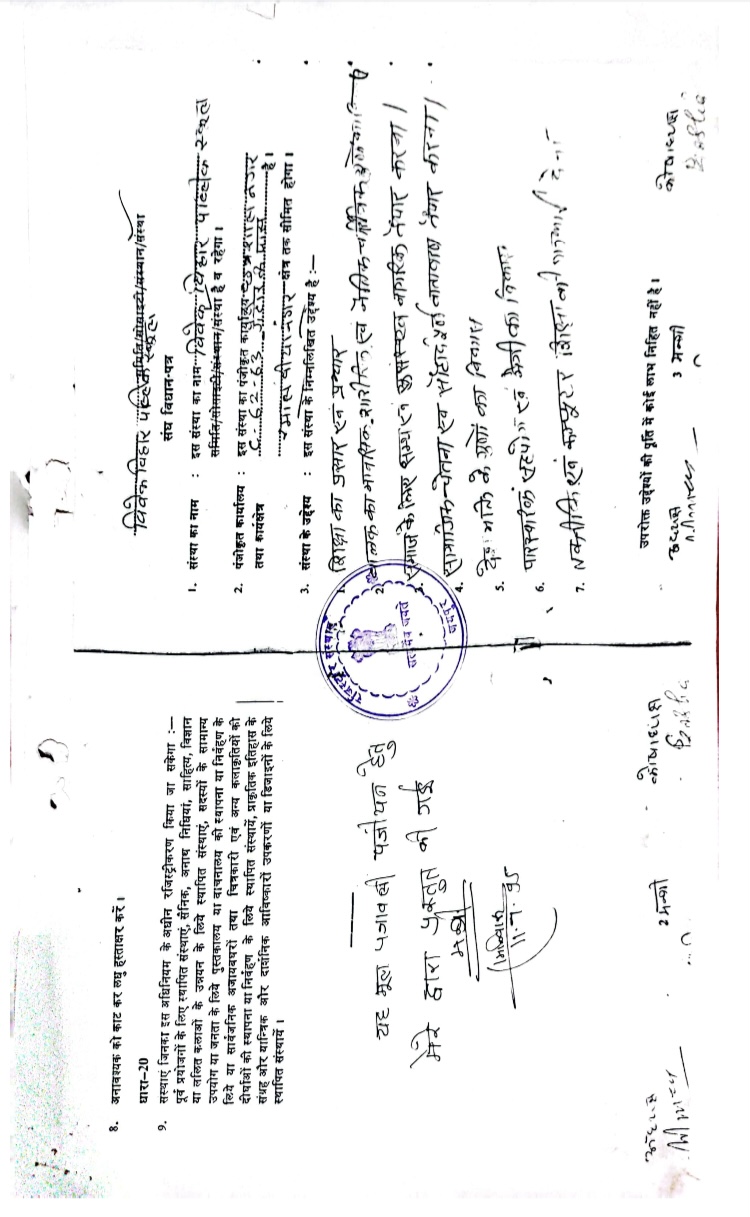 8. अनावश्यक को काट कर लघु हस्ताक्षर करें ।
धारा–20
9. संस्थाएं जिनका इस अधिनियम के अधीन रजिस्ट्रीकरण किया जा सकेगा :—
पूर्व प्रयोजनों के लिए स्थापित संस्थाएं, सैनिक, अनाथ निधियां, साहित्य, विज्ञान
या ललित कलाओं के उन्नयन के लिये स्थापित संस्थाएं, सदस्यों के सामान्य
उपयोग या जनता के लिये पुस्तकालय या वाचनालय की स्थापना या निर्वहण के
लिये या सार्वजनिक अजायबघरों तथा चित्रकारी एवं अन्य कलाकृतियों की
दीर्घाओं की स्थापना या निर्वहण के लिये स्थापित संस्थायें, प्राकृतिक इतिहास के
संग्रह और यान्त्रिक और दार्शनिक आविष्कारों उपकरणों या डिजाइनों के लिये
स्थापित संस्थायें ।
यह मूल पत्रावली पंजीयन हेतु
मेरे द्वारा प्रस्तुत की गई
मंत्री
11.7.95
अध्यक्ष
2 मन्त्री
कोषाध्यक्ष
विवेक विहार पब्लिक स्कूल समिति/सोसाइटी/संस्थान/संस्था
संघ विधान-पत्र
1. संस्था का नाम : इस संस्था का नाम विवेक विहार पब्लिक स्कूल
समिति/सोसाइटी/संस्थान/संस्था है व रहेगा ।
2. पंजीकृत कार्यालय : इस संस्था का पंजीकृत कार्यालय
C 62-63 है ।
तथा कार्यक्षेत्र क्षेत्र तक सीमित होगा ।
3. संस्था के उद्देश्य : इस संस्था के निम्नलिखित उद्देश्य हैं :—
1. शिक्षा का प्रसार एवं प्रचार
2. बालक का मानसिक, शारीरिक एवं नैतिक
3. समाज के लिए सभ्य सुसंस्कृत नागरिक तैयार करना ।
4. सामाजिक चेतना एवं सौहार्दपूर्ण वातावरण तैयार करना ।
5. के गुणों का विकास
6. पारस्परिक सहयोग एवं मैत्री का विकास
7. तकनीकि एवं कम्प्यूटर शिक्षा की जानकारी देना
उपरोक्त उद्देश्यों की पूर्ति में कोई लाभ निहित नहीं है ।
अध्यक्ष
3 मन्त्री
कोषाध्यक्ष
रजिस्ट्रार संस्थाएं
सत्यमेव जयते
जयपुर